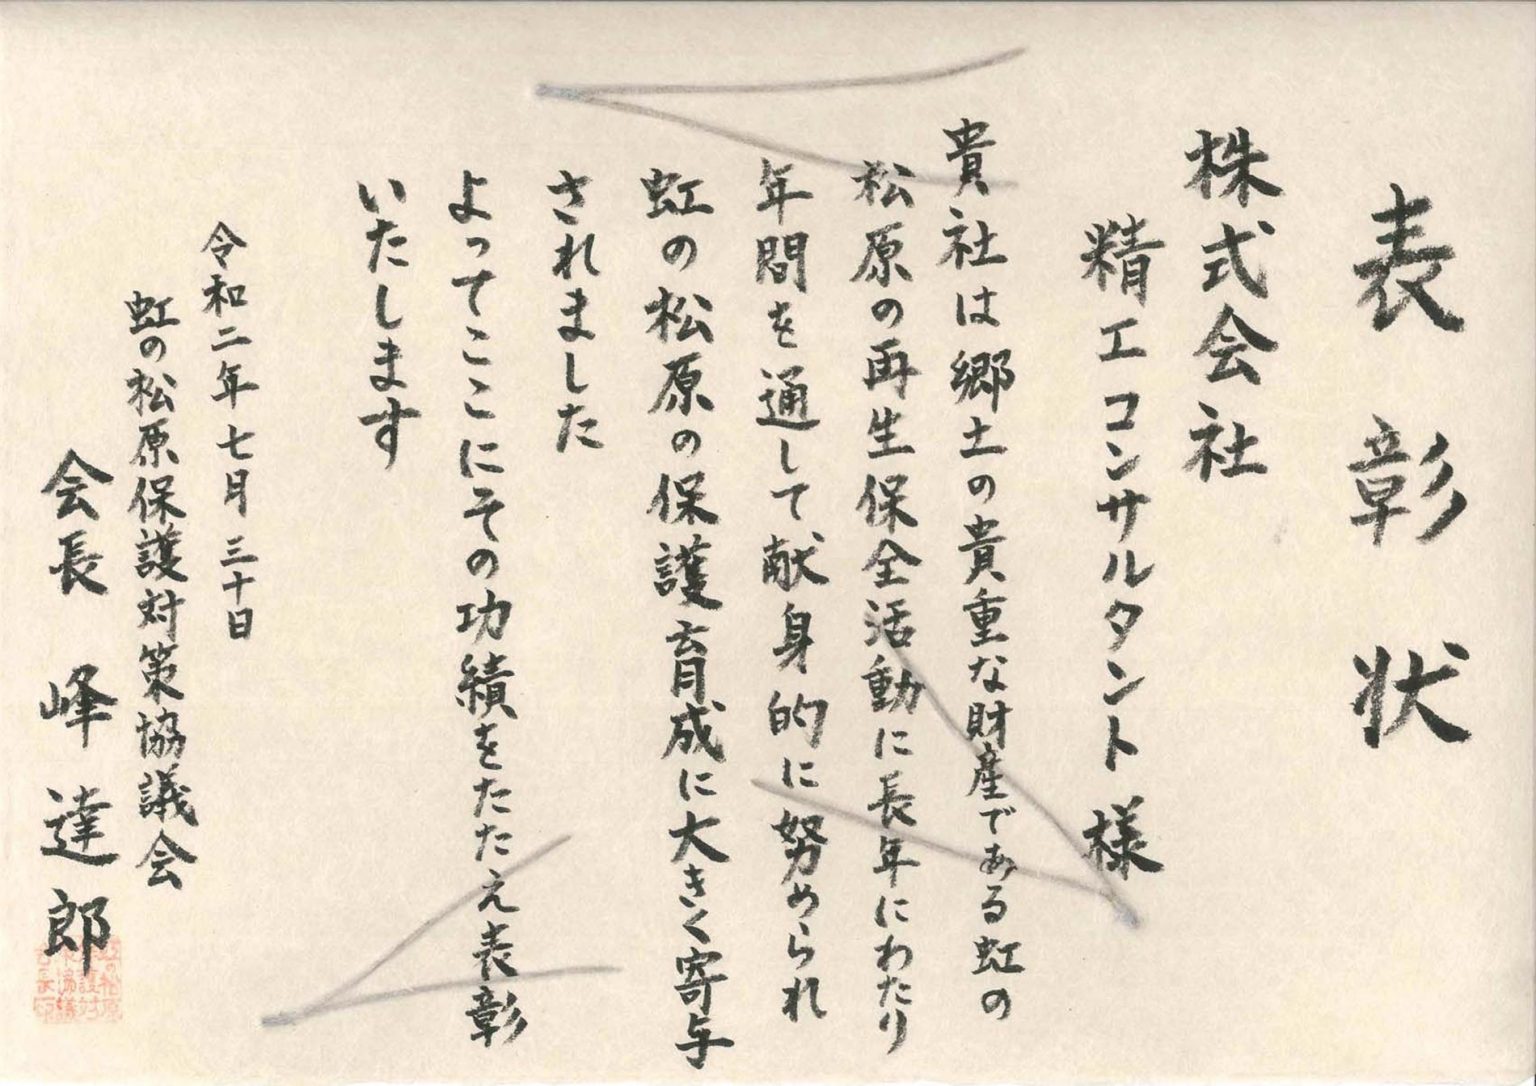 表彰状
株式会社
精工コンサルタント様
貴社は郷土の貴重な財産である虹の
松原の再生保全活動に長年にわたり
年間を通して献身的に努められ
虹の松原の保護育成に大きく寄与
されました
よってここにその功績をたたえ表彰
いたします
令和二年七月三十日
虹の松原保護対策協議会
会長 峰達郎